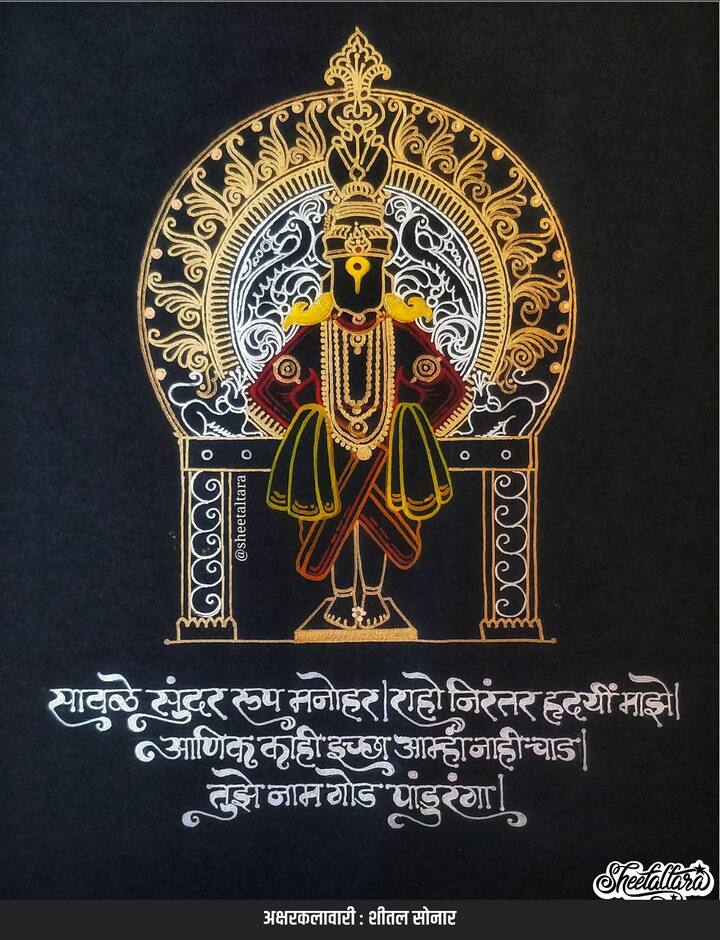 @sheetaltara
सावळे सुंदर रूप मनोहर|राहो निरंतर हृदयीं माझे|
आणिक काही इच्छा आम्हां नाही चाड|
तुझे नाम गोड पांडुरंगा|
Sheetaltara
अक्षरकलावारी : शीतल सोनार